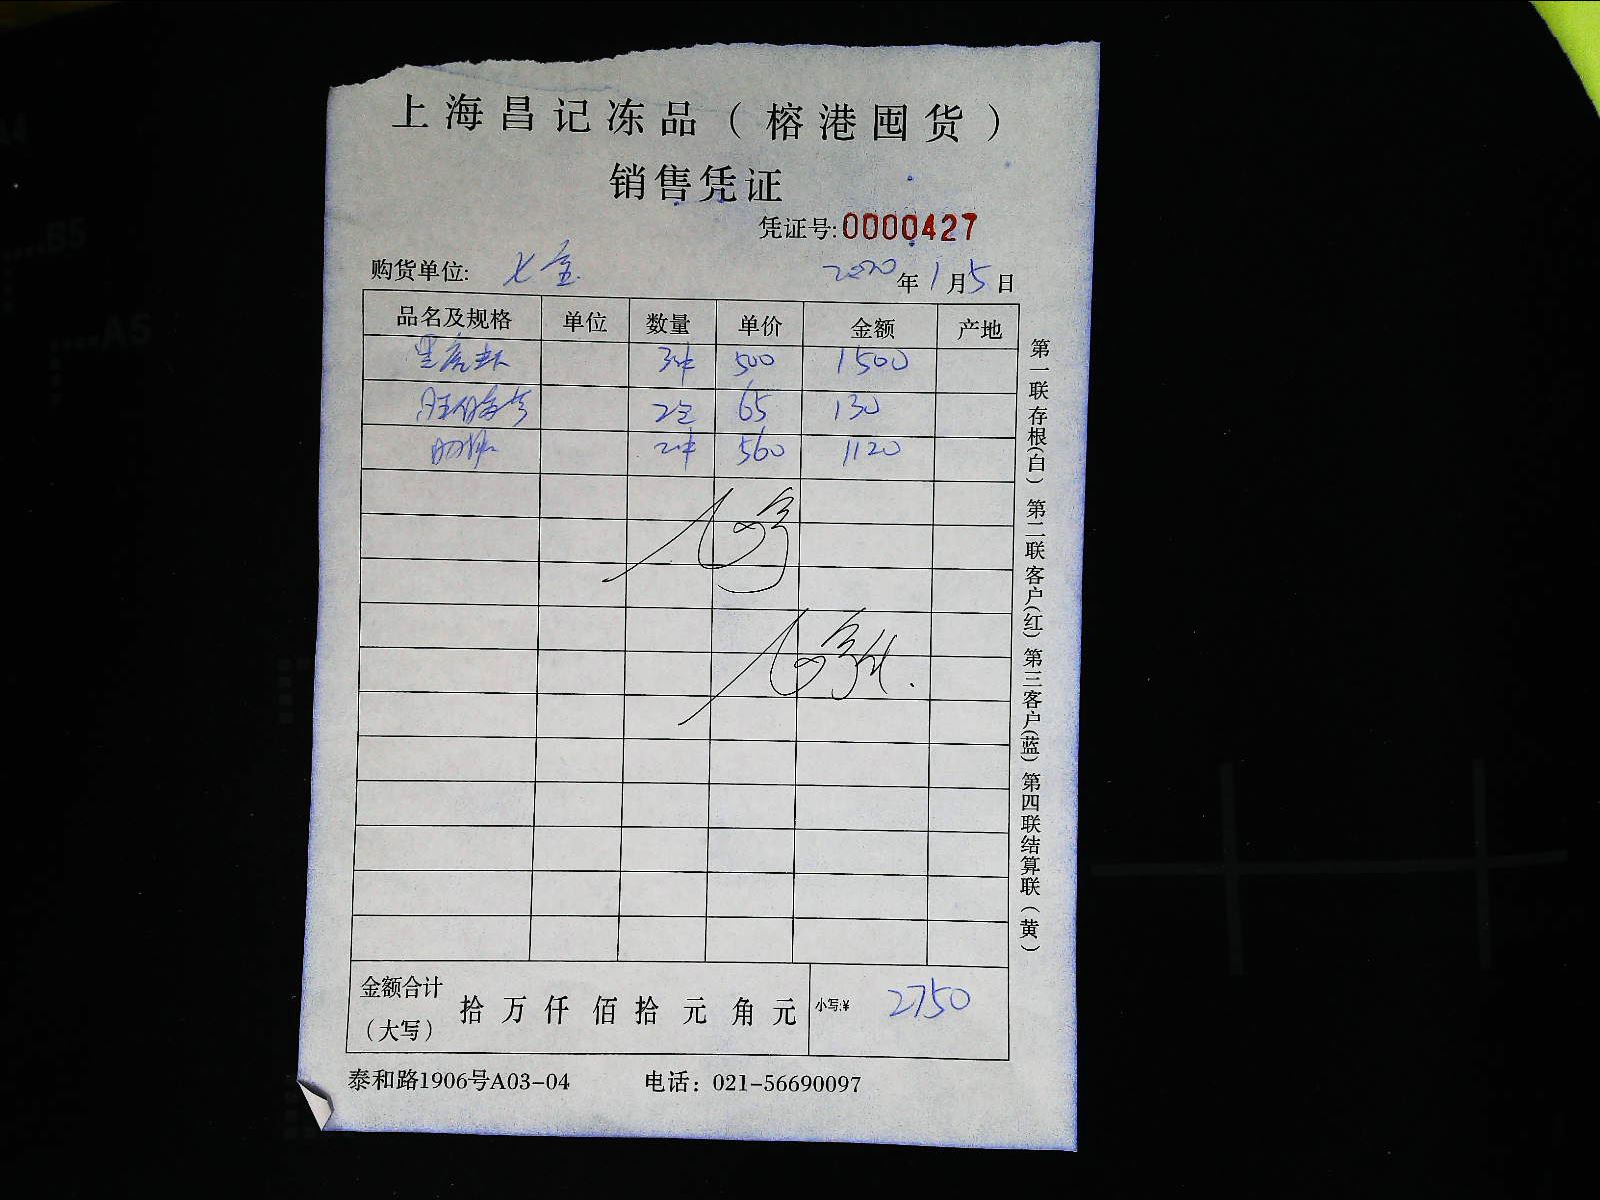 上海昌记冻品（榕港囤货）
销售凭证
凭证号:0000427
购货单位: 七宝 2020年1月5日
品名及规格 单位 数量 单价 金额 产地
黑虎虾 3件 500 1500
2包 65 130
2件 560 1120
金额合计（大写） 拾 万 仟 佰 拾 元 角 元 小写:¥ 2750
泰和路1906号A03-04 电话：021-56690097
第一联存根(白) 第二联客户(红) 第三客户(蓝) 第四联结算联（黄）
A5
B5